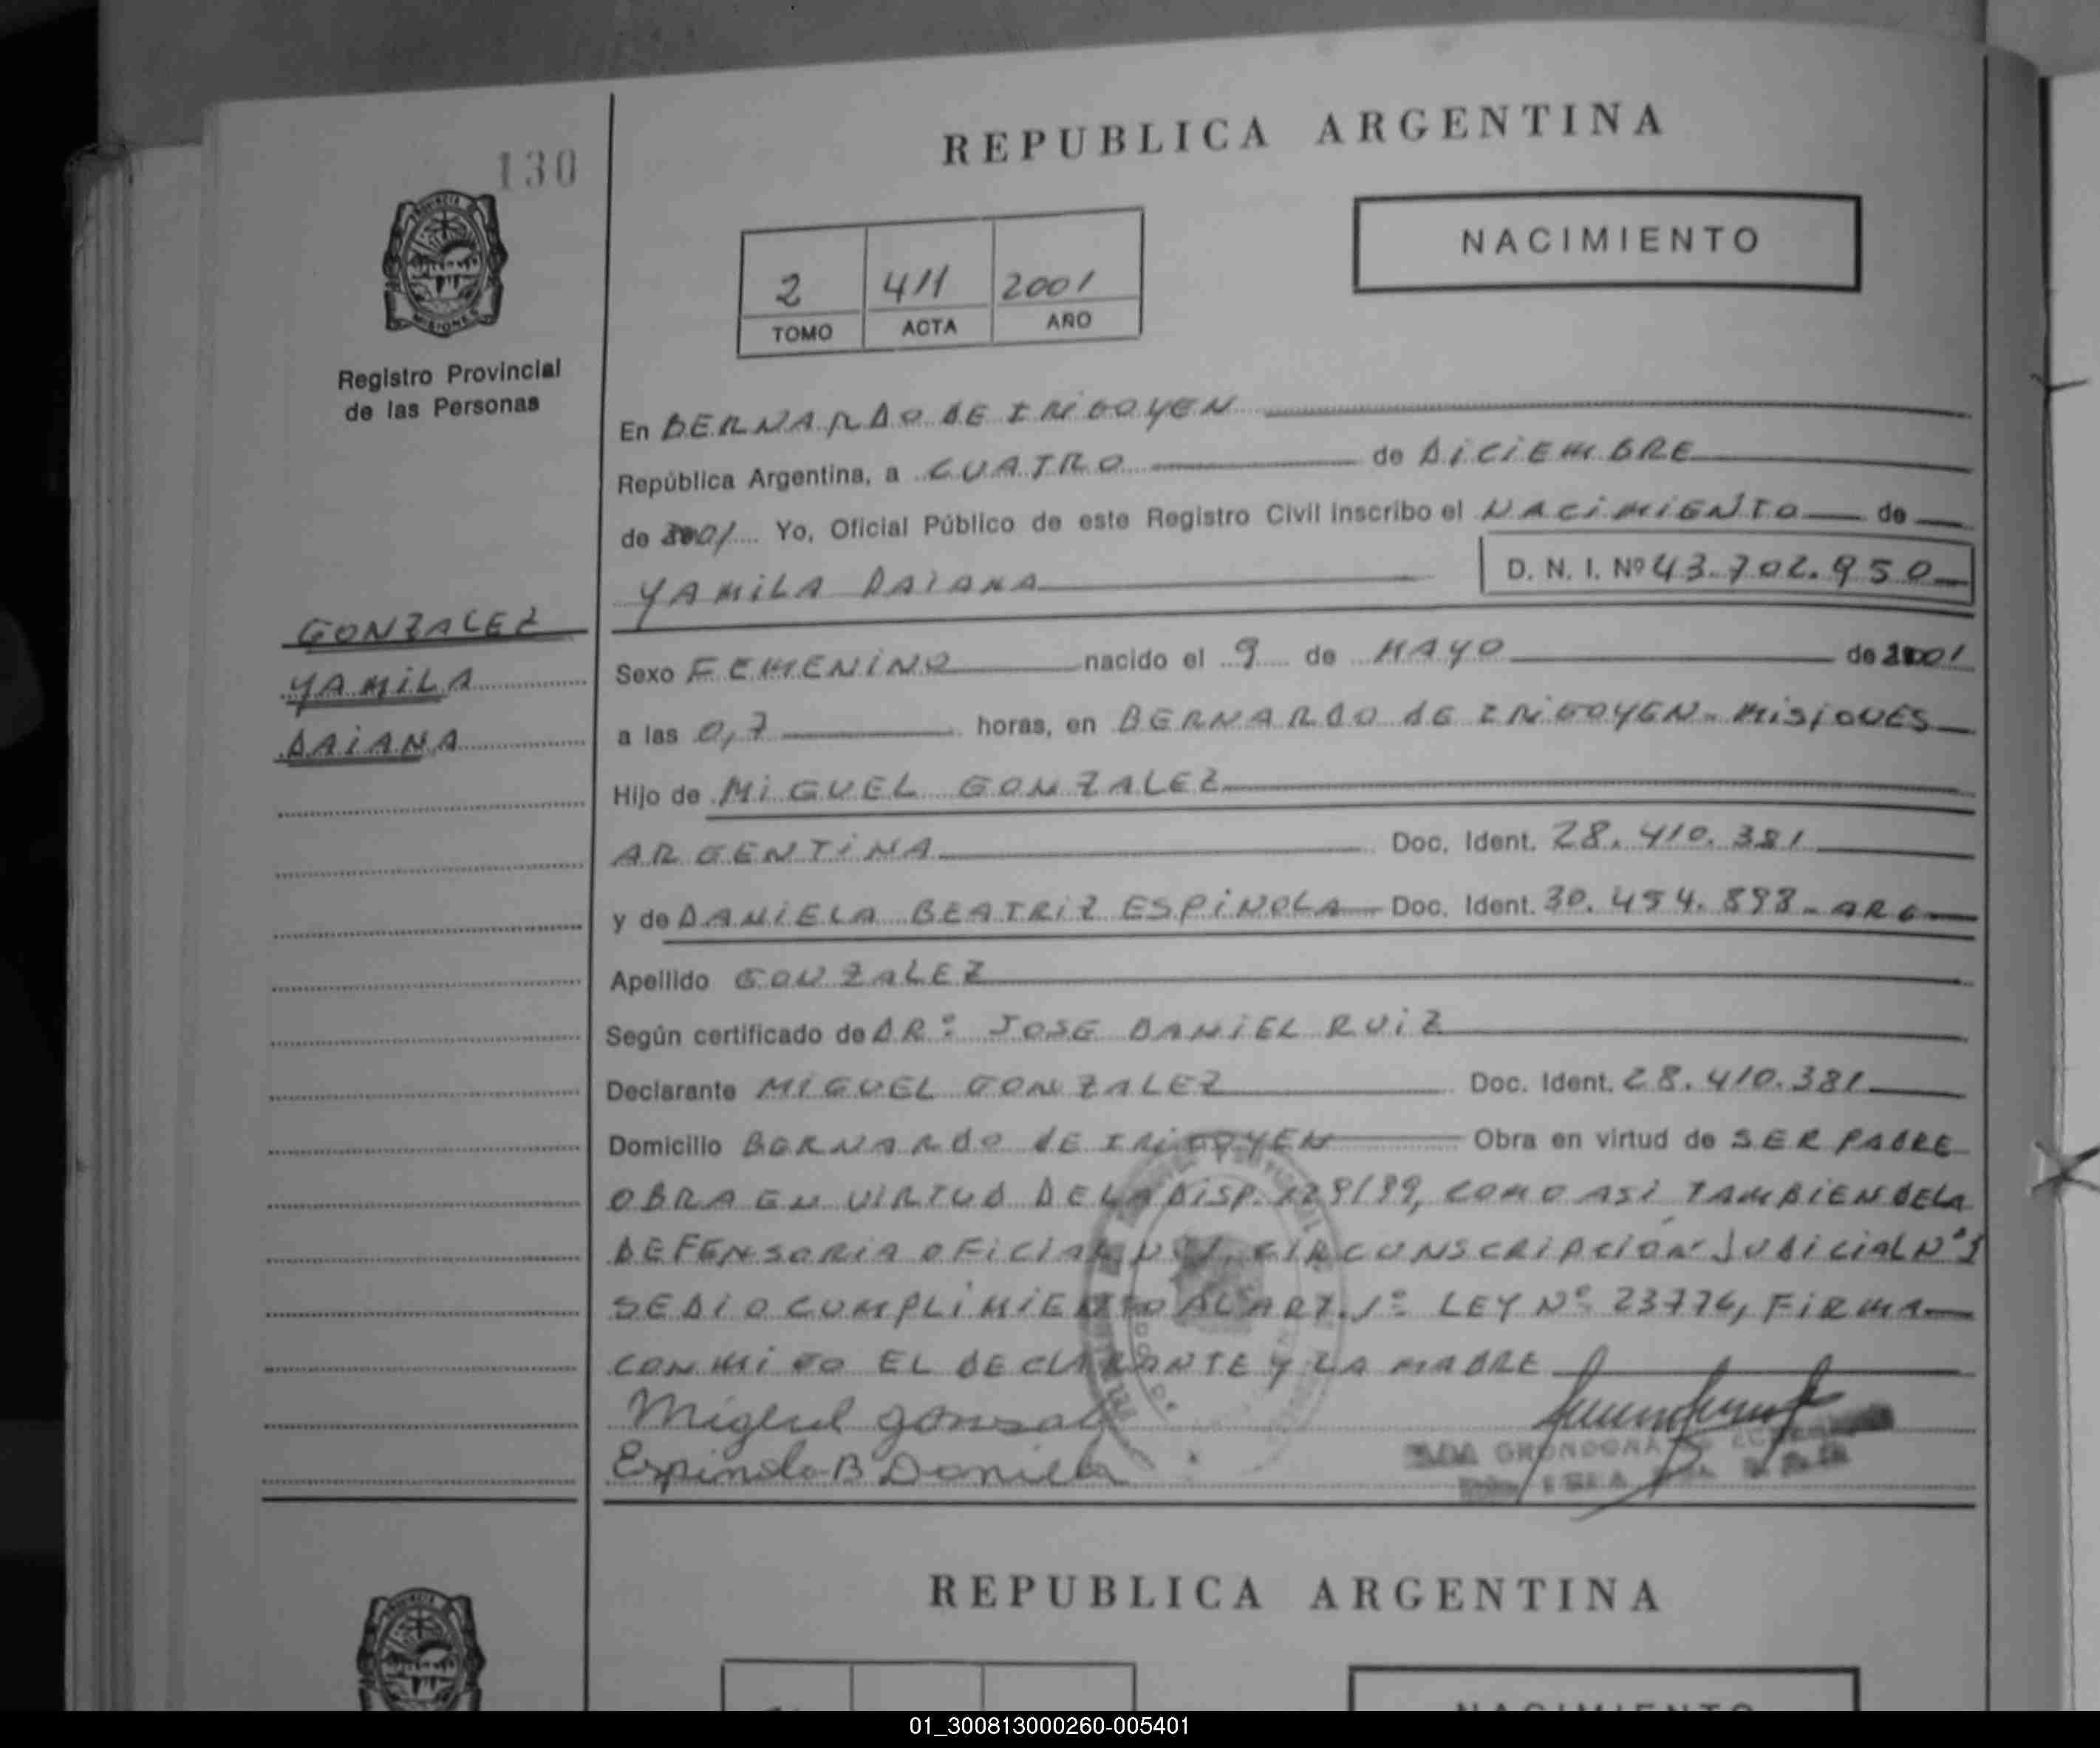 130
REPUBLICA ARGENTINA
NACIMIENTO
2 411 2001
TOMO ACTA AÑO
PROVINCIA
MISIONES
Registro Provincial
de las Personas
En BERNARDO DE IRIGOYEN
República Argentina, a CUATRO de DICIEMBRE
de 2001 Yo, Oficial Público de este Registro Civil inscribo el NACIMIENTO de
YAMILA DAIANA D. N. I. Nº 43.702.950
GONZALEZ
YAMILA
DAIANA
Sexo FEMENINO nacido el 9 de MAYO de 2001
a las 0,7 horas, en BERNARDO DE IRIGOYEN - MISIONES
Hijo de MIGUEL GONZALEZ
ARGENTINA Doc. Ident. 28.410.381
y de DANIELA BEATRIZ ESPINOLA Doc. Ident. 30.454.898 - ARG
Apellido GONZALEZ
Según certificado de DRº JOSE DANIEL RUIZ
Declarante MIGUEL GONZALEZ Doc. Ident. 28.410.381
Domicilio BERNARDO DE IRIGOYEN Obra en virtud de SER PADRE
OBRA EN VIRTUD DE LA DISP. 129/99, COMO ASI TAMBIEN DE LA
DEFENSORIA OFICIAL Nº 1 CIRCUNSCRIPCION JUDICIAL Nº 1
SE DIO CUMPLIMIENTO AL ART. 1º LEY Nº 23776, FIRMA
CONMIGO EL DECLARANTE Y LA MADRE
Miguel Gonsal
Espinola B Daniela
GRONDONA
REPUBLICA ARGENTINA
NACIMIENTO
01_300813000260-005401